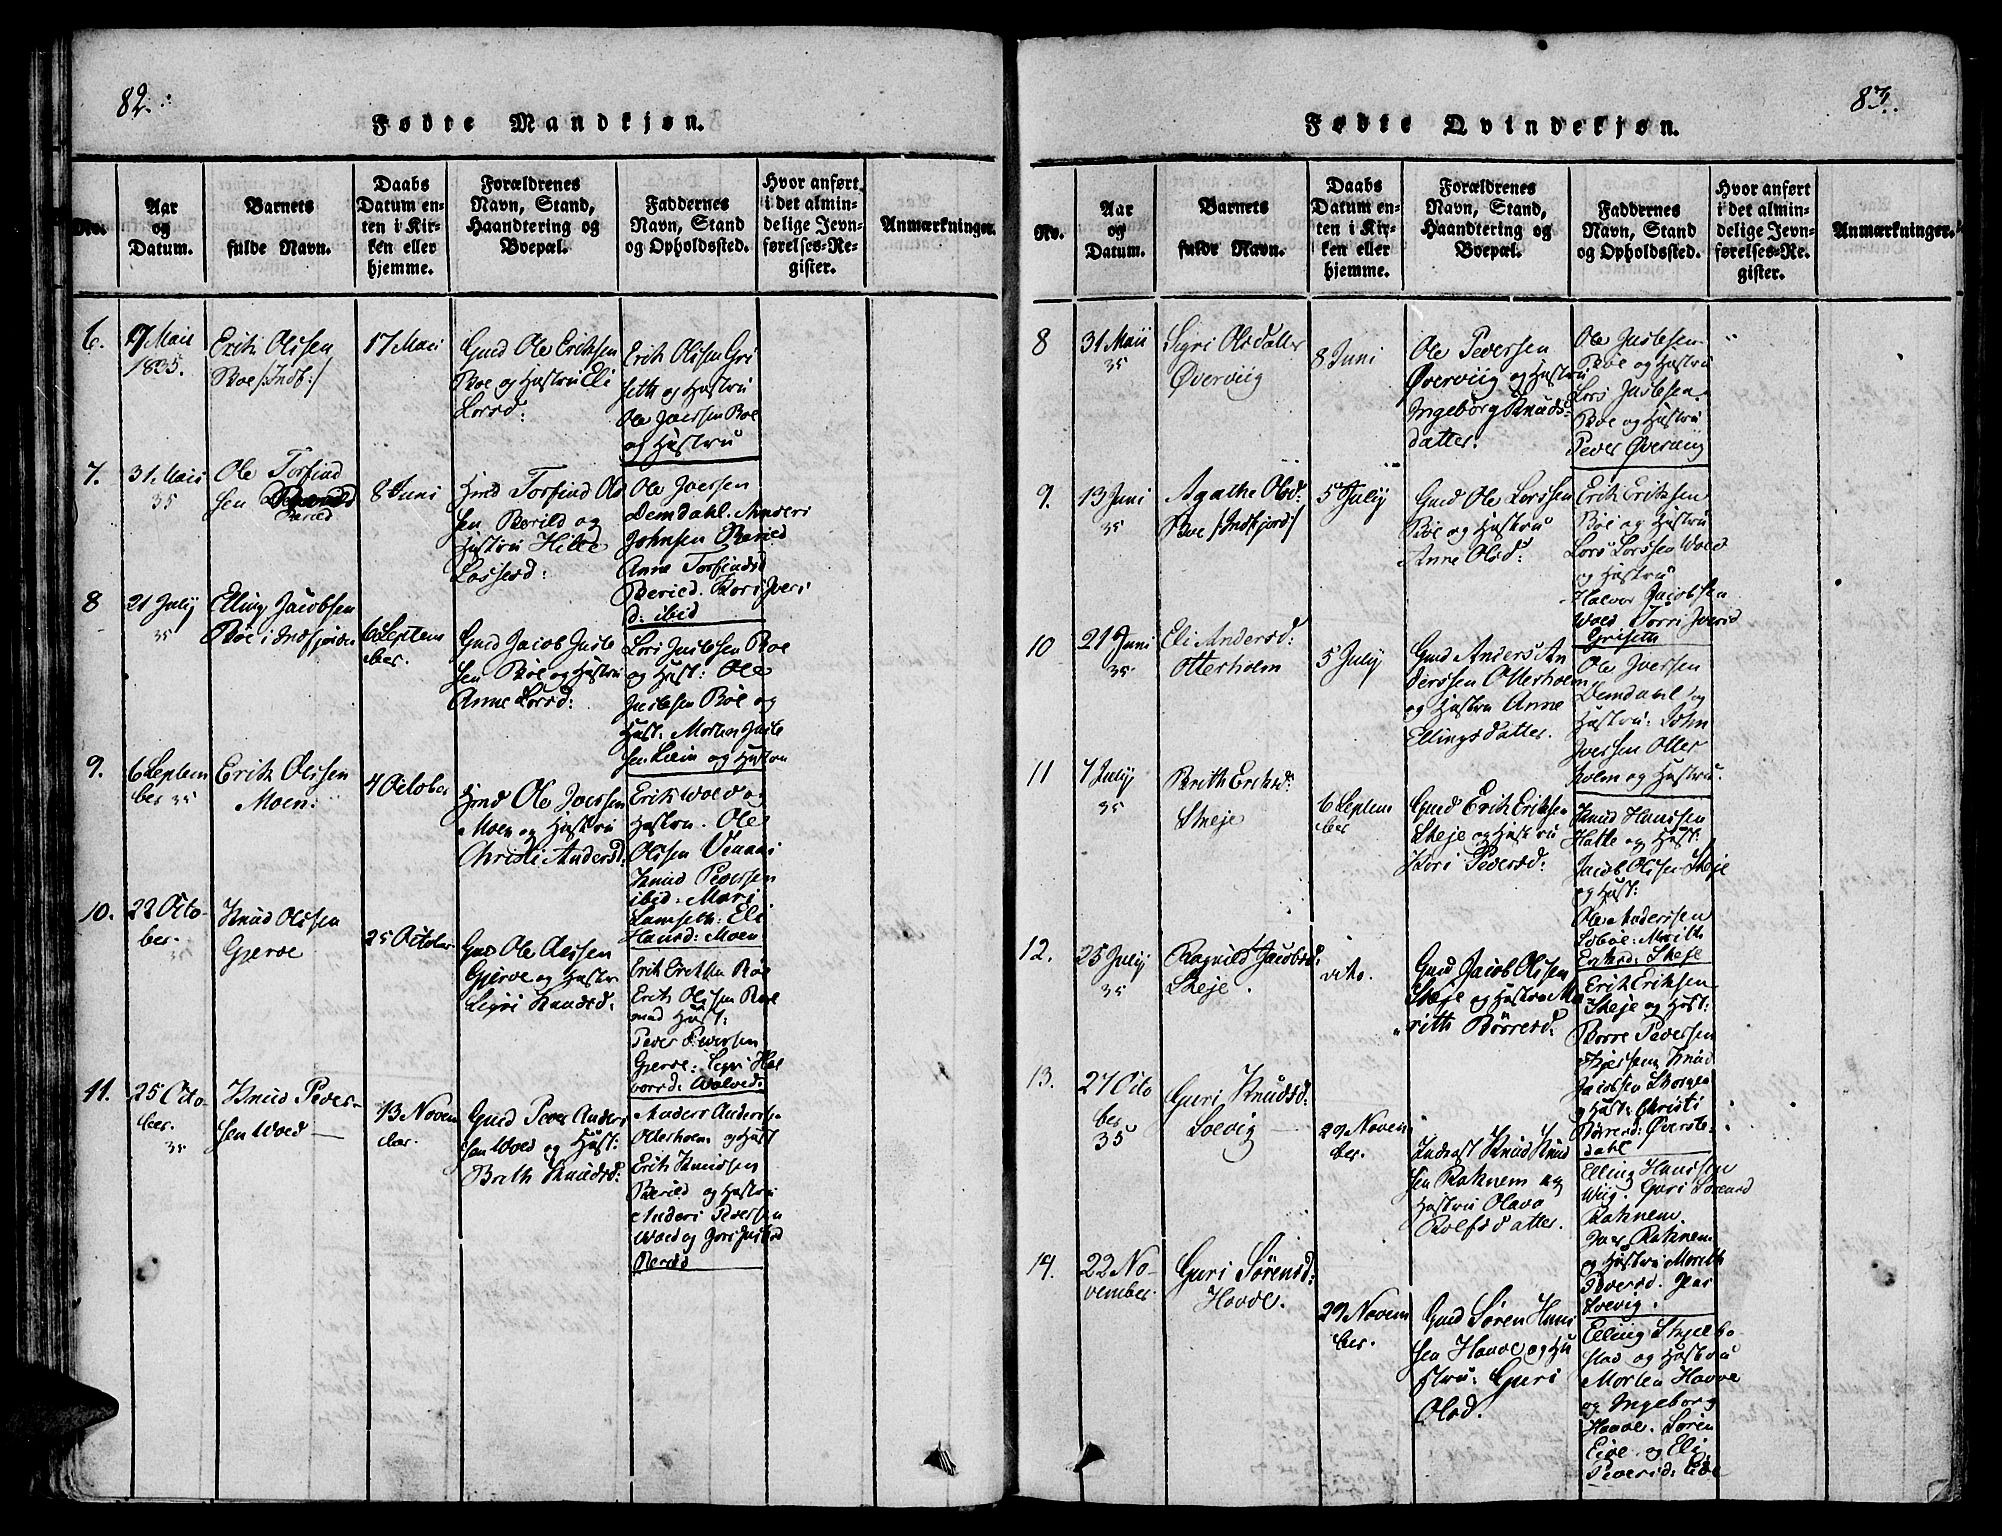 82.
Fødte Mandkjøn.
No.
Aar og Datum.
Barnets fulde Navn.
Daabs Datum enten i Kirken eller hjemme.
Forældrenes Navn, Stand, Haandtering og Boepæl.
Faddernes Navn, Stand og Opholdssted.
Hvor anført i det almindelige Jevnførelses-Register.
Anmærkninger.
6.
Maii
1835.
Erik Olssen
Roe /:Indf:/
17 Maii
Gmd Ole Eriksen
Boe og Hustru Eli
Larsd:
Erik Olssen Gri
seth og Hustru
Ole Joersen Boe
og Hustru
7.
31. Maii
35
Ole Torfind
sen
Beried
8 Juni
Hmd Torfind Ol
sen Berild og
Hustru Hilde
Lasserd:
Ole Joersen
Demdahl. Anders
Johnsen Beried
Anne Torfindsd
Beried. Kari Iveri
d: ibid
8
21 July
35
Elling Jacobsen
Böe i Indfjorden
6 Septem
ber.
Gmd Jacob Juste
sen Böe og Hustru
Anne Larsd:
Lars Justesen Boe
og Hust: Ole
Justesen Böe og
Hust. Morten Juste
sen Liein og Hustru
9.
6 Septem
ber 35
Erik Olssen
Moen:
4 October
Hmd Ole Joersen
Moen og Hustru
Christi Andersd:
Erik Wold og
Hustru. Ole
Olssen
Knud Pedersen
ibid: Mari
Eli
Hansd: Moen
10.
22 Octo-
ber.
35
Knud Olssen
Gjerde
25 October
Gmd Ole Olssen
Gjerde og Hustr
Sigri Knudsd:
Erik Eriksen Böe
Erik Olssen Boe
med Hust:
Peder Pedersen
Gjerde: Sigri Hal
vorsd: Wolved.
11.
25 Octo-
ber.
35
Knud Peder-
sen Wold
13 Novem
ber.
Gmd Peder Anders
sen Wold og Hust:
Brith Knudsd:
Anders Anders-
Otterholm og Hust
Erik Knudsen
Beried og Hustru
Anders Pedersen
Wold og
Beried
83.
Fødte Qvindekjøn.
No.
Aar og Datum.
Barnets fulde Navn.
Daabs Datum enten i Kirken eller hjemme.
Forældrenes Navn, Stand, Haandtering og Boepæl.
Faddernes Navn, Stand og Opholdssted.
Hvor anført i det almindelige Jevnførelses-Register.
Anmærkninger.
8
31 Maii
35
Sigri Olsdatter
Øverviig
8 Juni
Ole Pedersen
Øverviig og Hustru
Ingeborg Knuds-
datter.
Ole Justesen
Böe og Hustru
Lars Justesen
Böe og Hustru
Peder Øverviig
9.
13 Juni
35
Agathe Olsd:
Boe /:Indfjord:/
5 July
Gmd Ole Larssen
Böe og Hustru
Anne Olsd:
Erik Eriksen
Böe og Hustru
Lars Larssen Wold
og Hustru
Halvor Jacobsen
Wold Torri Iversd
Griseth
10
21 Juni
35
Eli Andersd:
Otterholm
5 July
Gmd Anders An
derssen Otterholm
og Hustru Anne
Ellingsdatter.
Ole Joersen
Demdahl og
Hustru: John
Joersen Otter
holm og Hustru
11
7 July
35
Brith Eriksd:
Skeje
6 Septem
ber
Gmd Erik Eriksen
Skeje og Hustru
Kari Pedersd:
Knud Hanssen
Hatle og Hust:
Jacob Olssen Skeje
og Hust:
Ole Anderssen
Marith
Eriksd: Skeje
12.
25 July
35
Ragnild Jacobsd:
Skeje.
dito.
Gmd Jacob Olssen
Skeje og Hustru Ma
rith Börresd:
Erik Eriksen
Skeje og Hust:
Borre Pedersen
Knud
Jacobsen
og Hust: Christi
Börresd: Øverste-
dahl
13.
27 Octo
ber
35
Guri Knudsd:
Soevig
29 Novem
ber.
Indrost Knud Knud
sen Raknem og
Hustru Olava
Rolfsdatter.
Elling Hanssen
Wiig. Guri Sörensd
Raknem.
Joer Raknem
og Hustru Marith
Pedersd.
Soevig.
14.
22 No-
vember.
Guri Sörensd:
Hovde.
29 Novem
ber.
Gmd Sören Hans
sen Hovde og Hu
stru: Guri
Olsd.
Elling Skjelbo-
stad og Hustru
Morten Hovde
og Ingeborg
Hovde. Sören
Eide og Eli
Pedersd: Eide